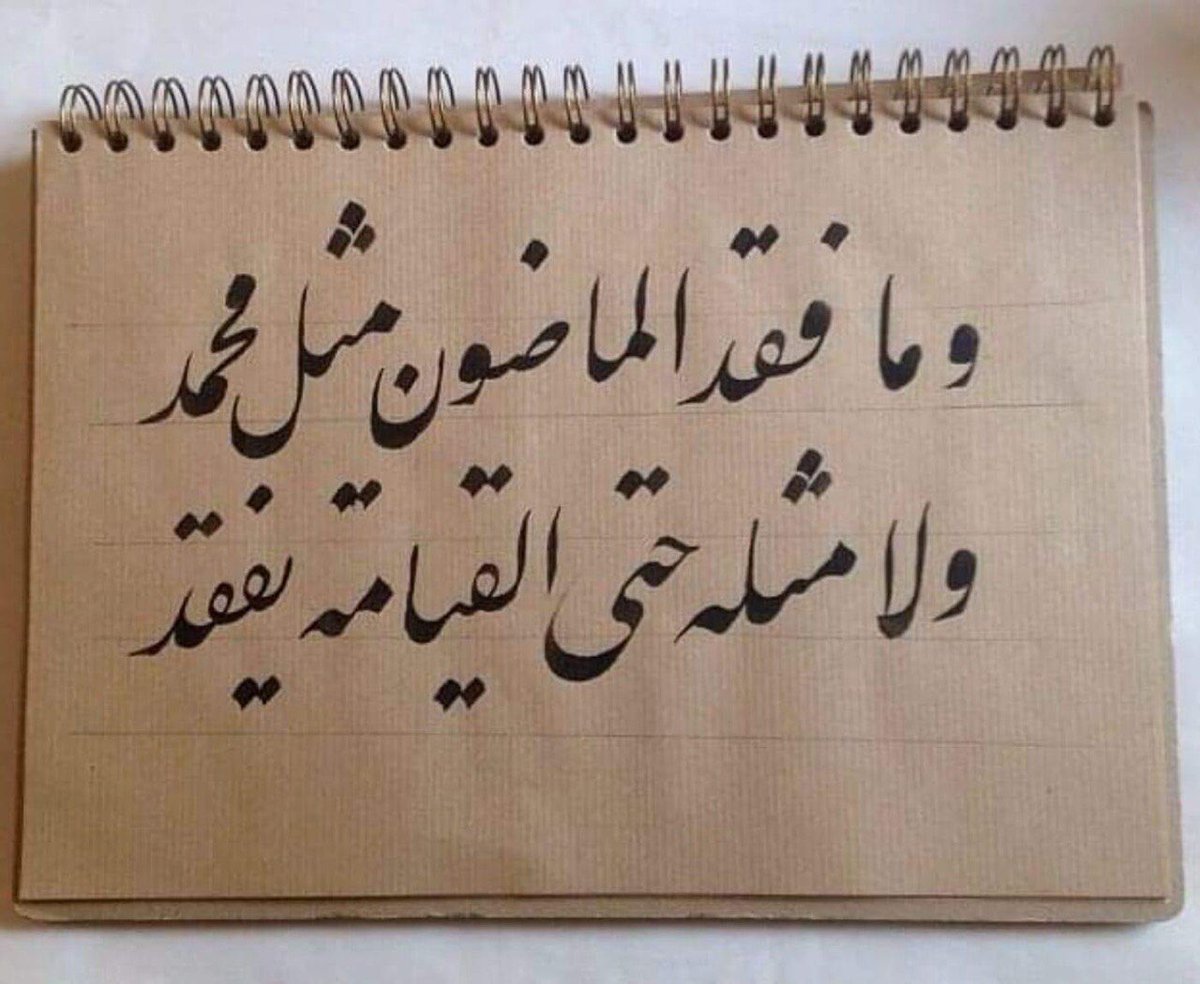 وما فقد الماضون مثل محمد
ولا مثله حتى القيامة يفقد